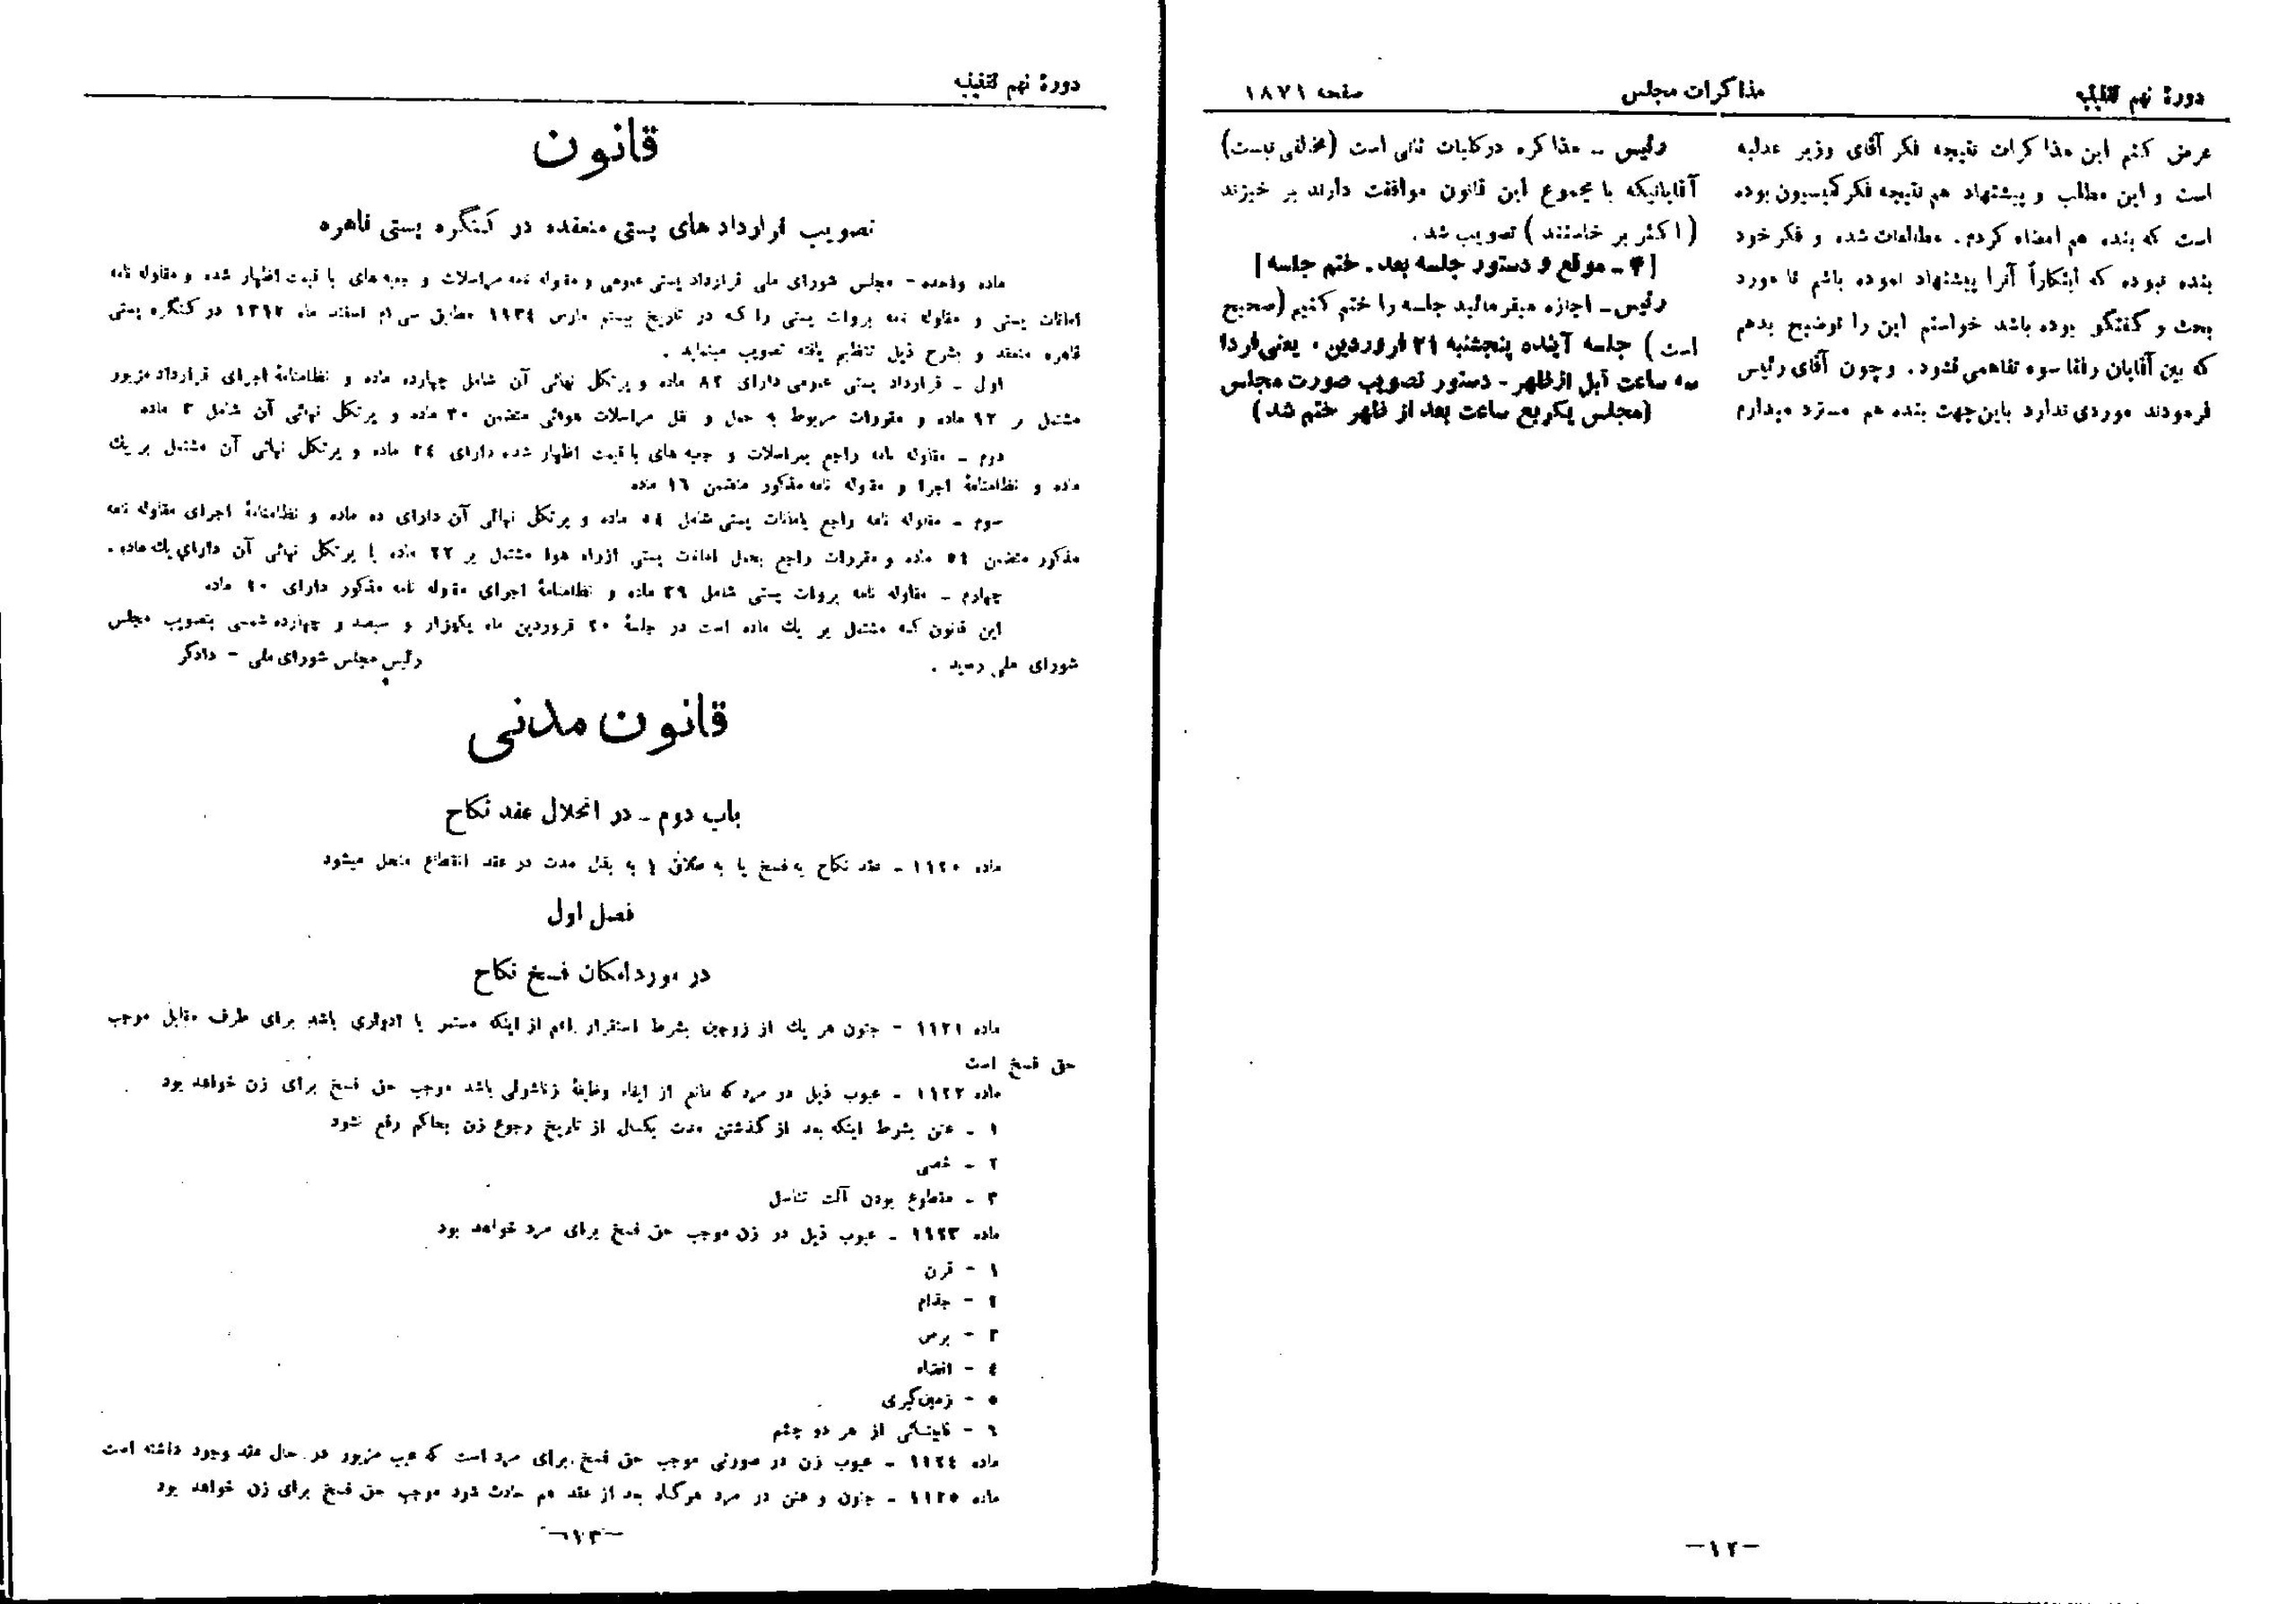 دورهٔ نهم تقنینیه
مذاکرات مجلس
صفحه ۱۸۷۱
عرض کنم این مذاکرات نتیجه فکر آقای وزیر عدلیه
است و این مطلب و پیشنهاد هم نتیجه فکر کمیسیون بوده
است که بنده هم امضاء کردم. مطالعات شده و فکر خود
بنده نبوده که ابتکاراً آنرا پیشنهاد نموده باشم تا مورد
بحث و گفتگو بوده باشد خواستم این را توضیح بدهم
که بین آقایان رفقا سوء تفاهمی نشود. و چون آقای رئیس
فرمودند موردی ندارد باین جهت بنده هم مسترد میدارم
رئیس ـ مذاکره در کلیات ثانی است (مخالفی نیست)
آقایانیکه با مجموع این قانون موافقت دارند بر خیزند
(اکثر بر خاستند) تصویب شد.
[۴ ـ موقع و دستور جلسه بعد. ختم جلسه]
رئیس ـ اجازه میفرمائید جلسه را ختم کنیم (صحیح
است) جلسه آینده پنجشنبه ۲۱ فروردین. یعنی فردا
سه ساعت قبل از ظهر ـ دستور تصویب صورت مجلس
(مجلس یکربع ساعت بعد از ظهر ختم شد)
ـ۱۲ـ
دورهٔ نهم تقنینیه
قانون
تصویب قراردادهای پستی منعقده در کنگره پستی قاهره
ماده واحده - مجلس شورای ملی قرارداد پستی عمومی و مقاوله نامه مراسلات و جعبه های با قیمت اظهار شده و مقاوله نامه
امانات پستی و مقاوله نامه بروات پستی را که در تاریخ بیستم مارس ۱۹۳٤ مطابق سی ام اسفند ماه ۱۳۱۲ در کنگره پستی
قاهره منعقد و بشرح ذیل تنظیم یافته تصویب مینماید.
اول ـ قرارداد پستی عمومی دارای ۸۲ ماده و پرتکل نهائی آن شامل چهارده ماده و نظامنامهٔ اجرای قرارداد مزبور
مشتمل بر ۹۲ ماده و مقررات مربوط به حمل و نقل مراسلات هوائی متضمن ۳۰ ماده و پرتکل نهائی آن شامل ۲ ماده
دوم ـ مقاوله نامه راجع بمراسلات و جعبه های با قیمت اظهار شده دارای ۲٤ ماده و پرتکل نهائی آن مشتمل بر یك
ماده و نظامنامهٔ اجرا و مقاوله نامه مذکور متضمن ۱٦ ماده
سوم ـ مقاوله نامه راجع بامانات پستی شامل ماده و پرتکل نهائی آن دارای ده ماده و نظامنامهٔ اجرای مقاوله نامه
مذکور متضمن ماده و مقررات راجع بحمل امانات پستی از راه هوا مشتمل بر ۲۲ ماده با پرتکل نهائی آن دارای یك ماده.
چهارم ـ مقاوله نامه بروات پستی شامل ۲۹ ماده و نظامنامهٔ اجرای مقاوله نامه مذکور دارای ماده
این قانون که مشتمل بر یك ماده است در جلسهٔ ۲۰ فروردین ماه یکهزار و سیصد و چهارده شمسی بتصویب مجلس
شورای ملی رسید.
رئیس مجلس شورای ملی - دادگر
قانون مدنی
باب دوم ـ در انحلال عقد نکاح
ماده ۱۱۲۰ ـ عقد نکاح به فسخ یا به طلاق یا به بذل مدت در عقد انقطاع منحل میشود
فصل اول
در مورد امکان فسخ نکاح
ماده ۱۱۲۱ - جنون هر یك از زوجین بشرط استقرار اعم از اینکه مستمر یا ادواری باشد برای طرف مقابل موجب
حق فسخ است
ماده ۱۱۲۲ ـ عیوب ذیل در مرد که مانع از ایفاء وظیفهٔ زناشوئی باشد موجب حق فسخ برای زن خواهد بود
۱ ـ عنن بشرط اینکه بعد از گذشتن مدت یکسال از تاریخ رجوع زن بحاکم رفع نشود
۲ ـ خصی
۳ ـ مقطوع بودن آلت تناسل
ماده ۱۱۲۳ ـ عیوب ذیل در زن موجب حق فسخ برای مرد خواهد بود
۱ - قرن
۲ - جذام
۳ - برص
٤ - افضاء
۵ - زمین گیری
٦ - نابینائی از هر دو چشم
ماده ۱۱۲٤ ـ عیوب زن در صورتی موجب حق فسخ برای مرد است که عیب مزبور در حال عقد وجود داشته است
ماده ۱۱۲۵ ـ جنون و عنن در مرد هرگاه بعد از عقد هم حادث شود موجب حق فسخ برای زن خواهد بود
ـ۱۳ـ